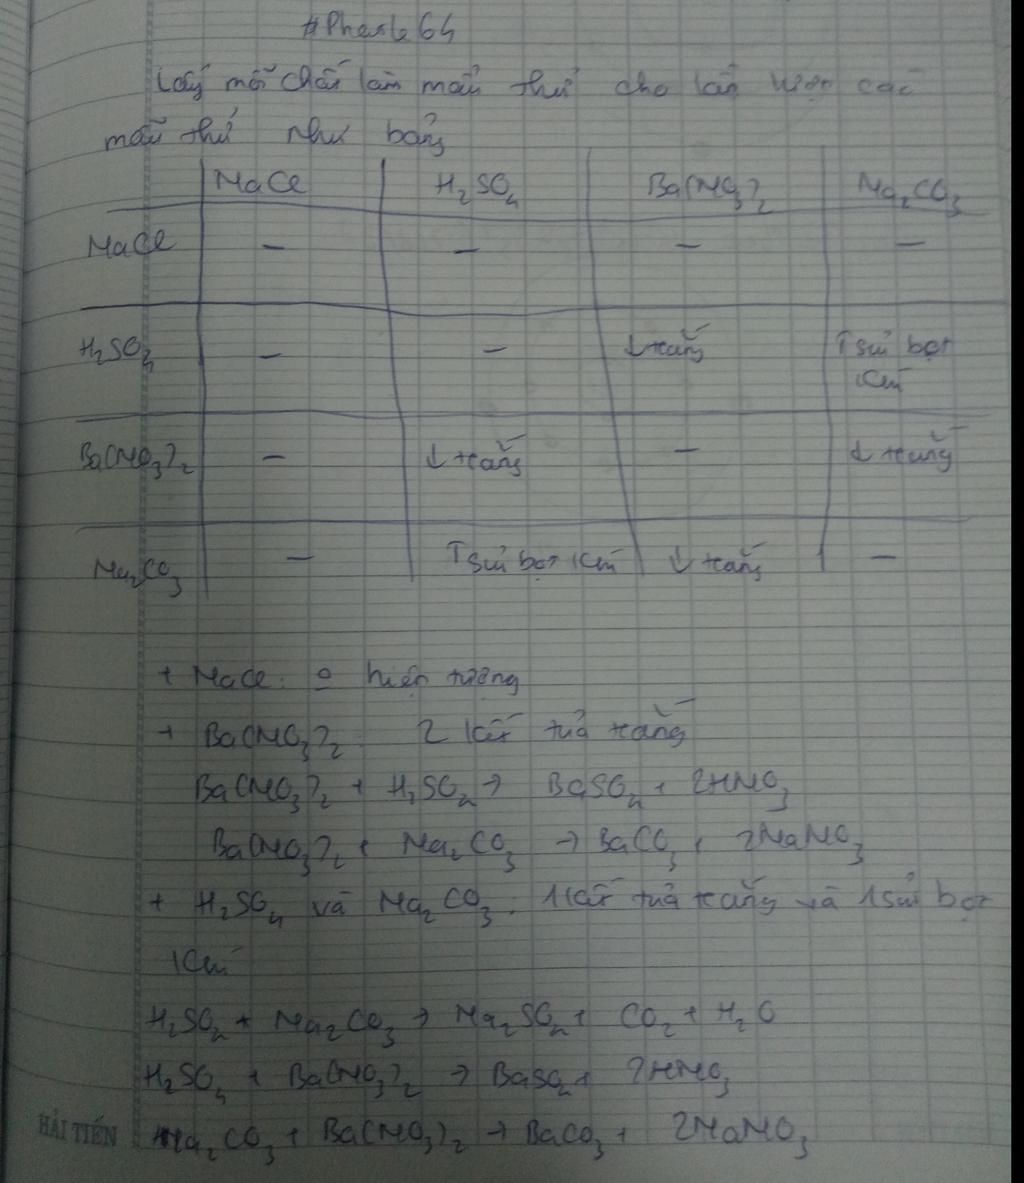 #Phenle64
Lấy mỗi chất làm mẫu thử cho lần lượt các
mẫu thử như bảng
NaCl H₂SO₄ Ba(NO₃)₂ Na₂CO₃
NaCl – – – –
H₂SO₄ – – ↓trắng ↑sủi bọt
khí
Ba(NO₃)₂ – ↓trắng – ↓trắng
Na₂CO₃ – ↑sủi bọt khí ↓trắng –
+ NaCl: 0 hiện tượng
+ Ba(NO₃)₂: 2 kết tủa trắng
Ba(NO₃)₂ + H₂SO₄ → BaSO₄ + 2HNO₃
Ba(NO₃)₂ + Na₂CO₃ → BaCO₃ + 2NaNO₃
+ H₂SO₄ và Na₂CO₃: 1 kết tủa trắng và 1 sủi bọt
khí
H₂SO₄ + Na₂CO₃ → Na₂SO₄ + CO₂ + H₂O
H₂SO₄ + Ba(NO₃)₂ → BaSO₄ + 2HNO₃
Na₂CO₃ + Ba(NO₃)₂ → BaCO₃ + 2NaNO₃
HẢI TIẾN